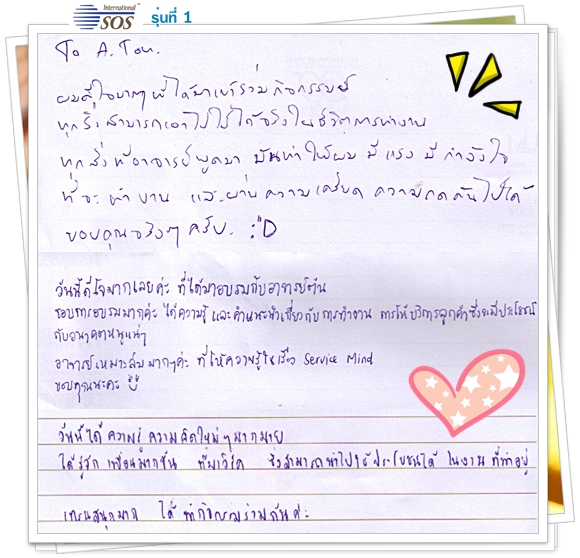 International
SOS รุ่นที่ 1
To A. Ton.
ผมดีใจมากๆ ที่ได้มาเข้าร่วมกิจกรรมนี้
ทุกสิ่งสามารถเอาไปใช้ได้จริงในชีวิตการทำงาน
ทุกสิ่งที่อาจารย์พูดมา มันทำให้ผม มีแรง มีกำลังใจ
ที่จะทำงาน และผ่านความเครียด ความกดดันไปได้
ขอบคุณจริงๆ ครับ. :"D
วันนี้ดีใจมากเลยค่ะ ที่ได้มาอบรมกับอาจารย์ต้น
ชอบการอบรมมากค่ะ ได้ความรู้ และคำแนะนำเกี่ยวกับการทำงาน การให้บริการลูกค้าซึ่งจะมีประโยชน์
กับอนาคตหนูแน่ๆ
อาจารย์เหมาะสมมากๆค่ะ ที่ให้ความรู้ในเรื่อง Service Mind
ขอบคุณนะคะ
วันนี้ได้ความรู้ ความคิดใหม่ๆมากมาย
ได้รู้จักเพื่อนมากขึ้น ที่มาเวิร์ค ซึ่งสามารถนำไปใช้ประโยชน์ได้ ในงานที่ทำอยู่
เทรนสนุกมาก ได้ทำกิจกรรมร่วมกันค่ะ